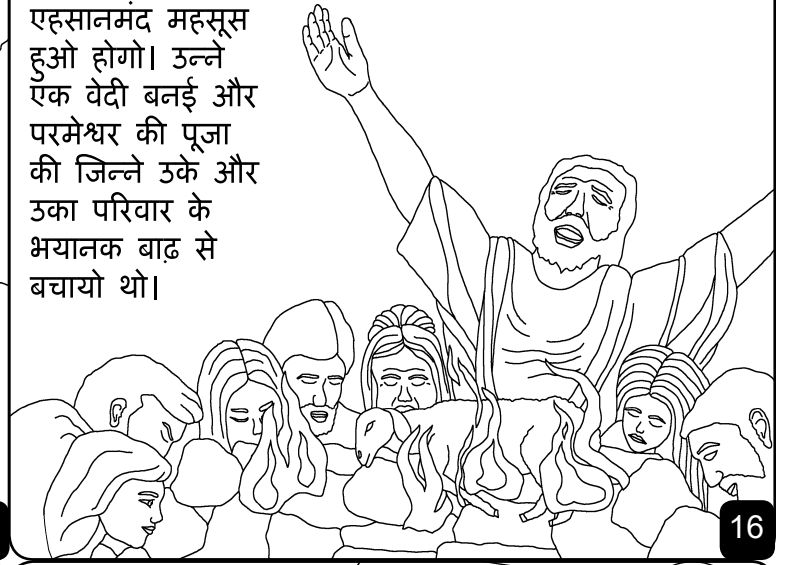 एहसानमंद महसूस
हुओ होगो। उन्ने
एक वेदी बनई और
परमेश्वर की पूजा
की जिन्ने उके और
उका परिवार के
भयानक बाढ़ से
बचायो थो।
16